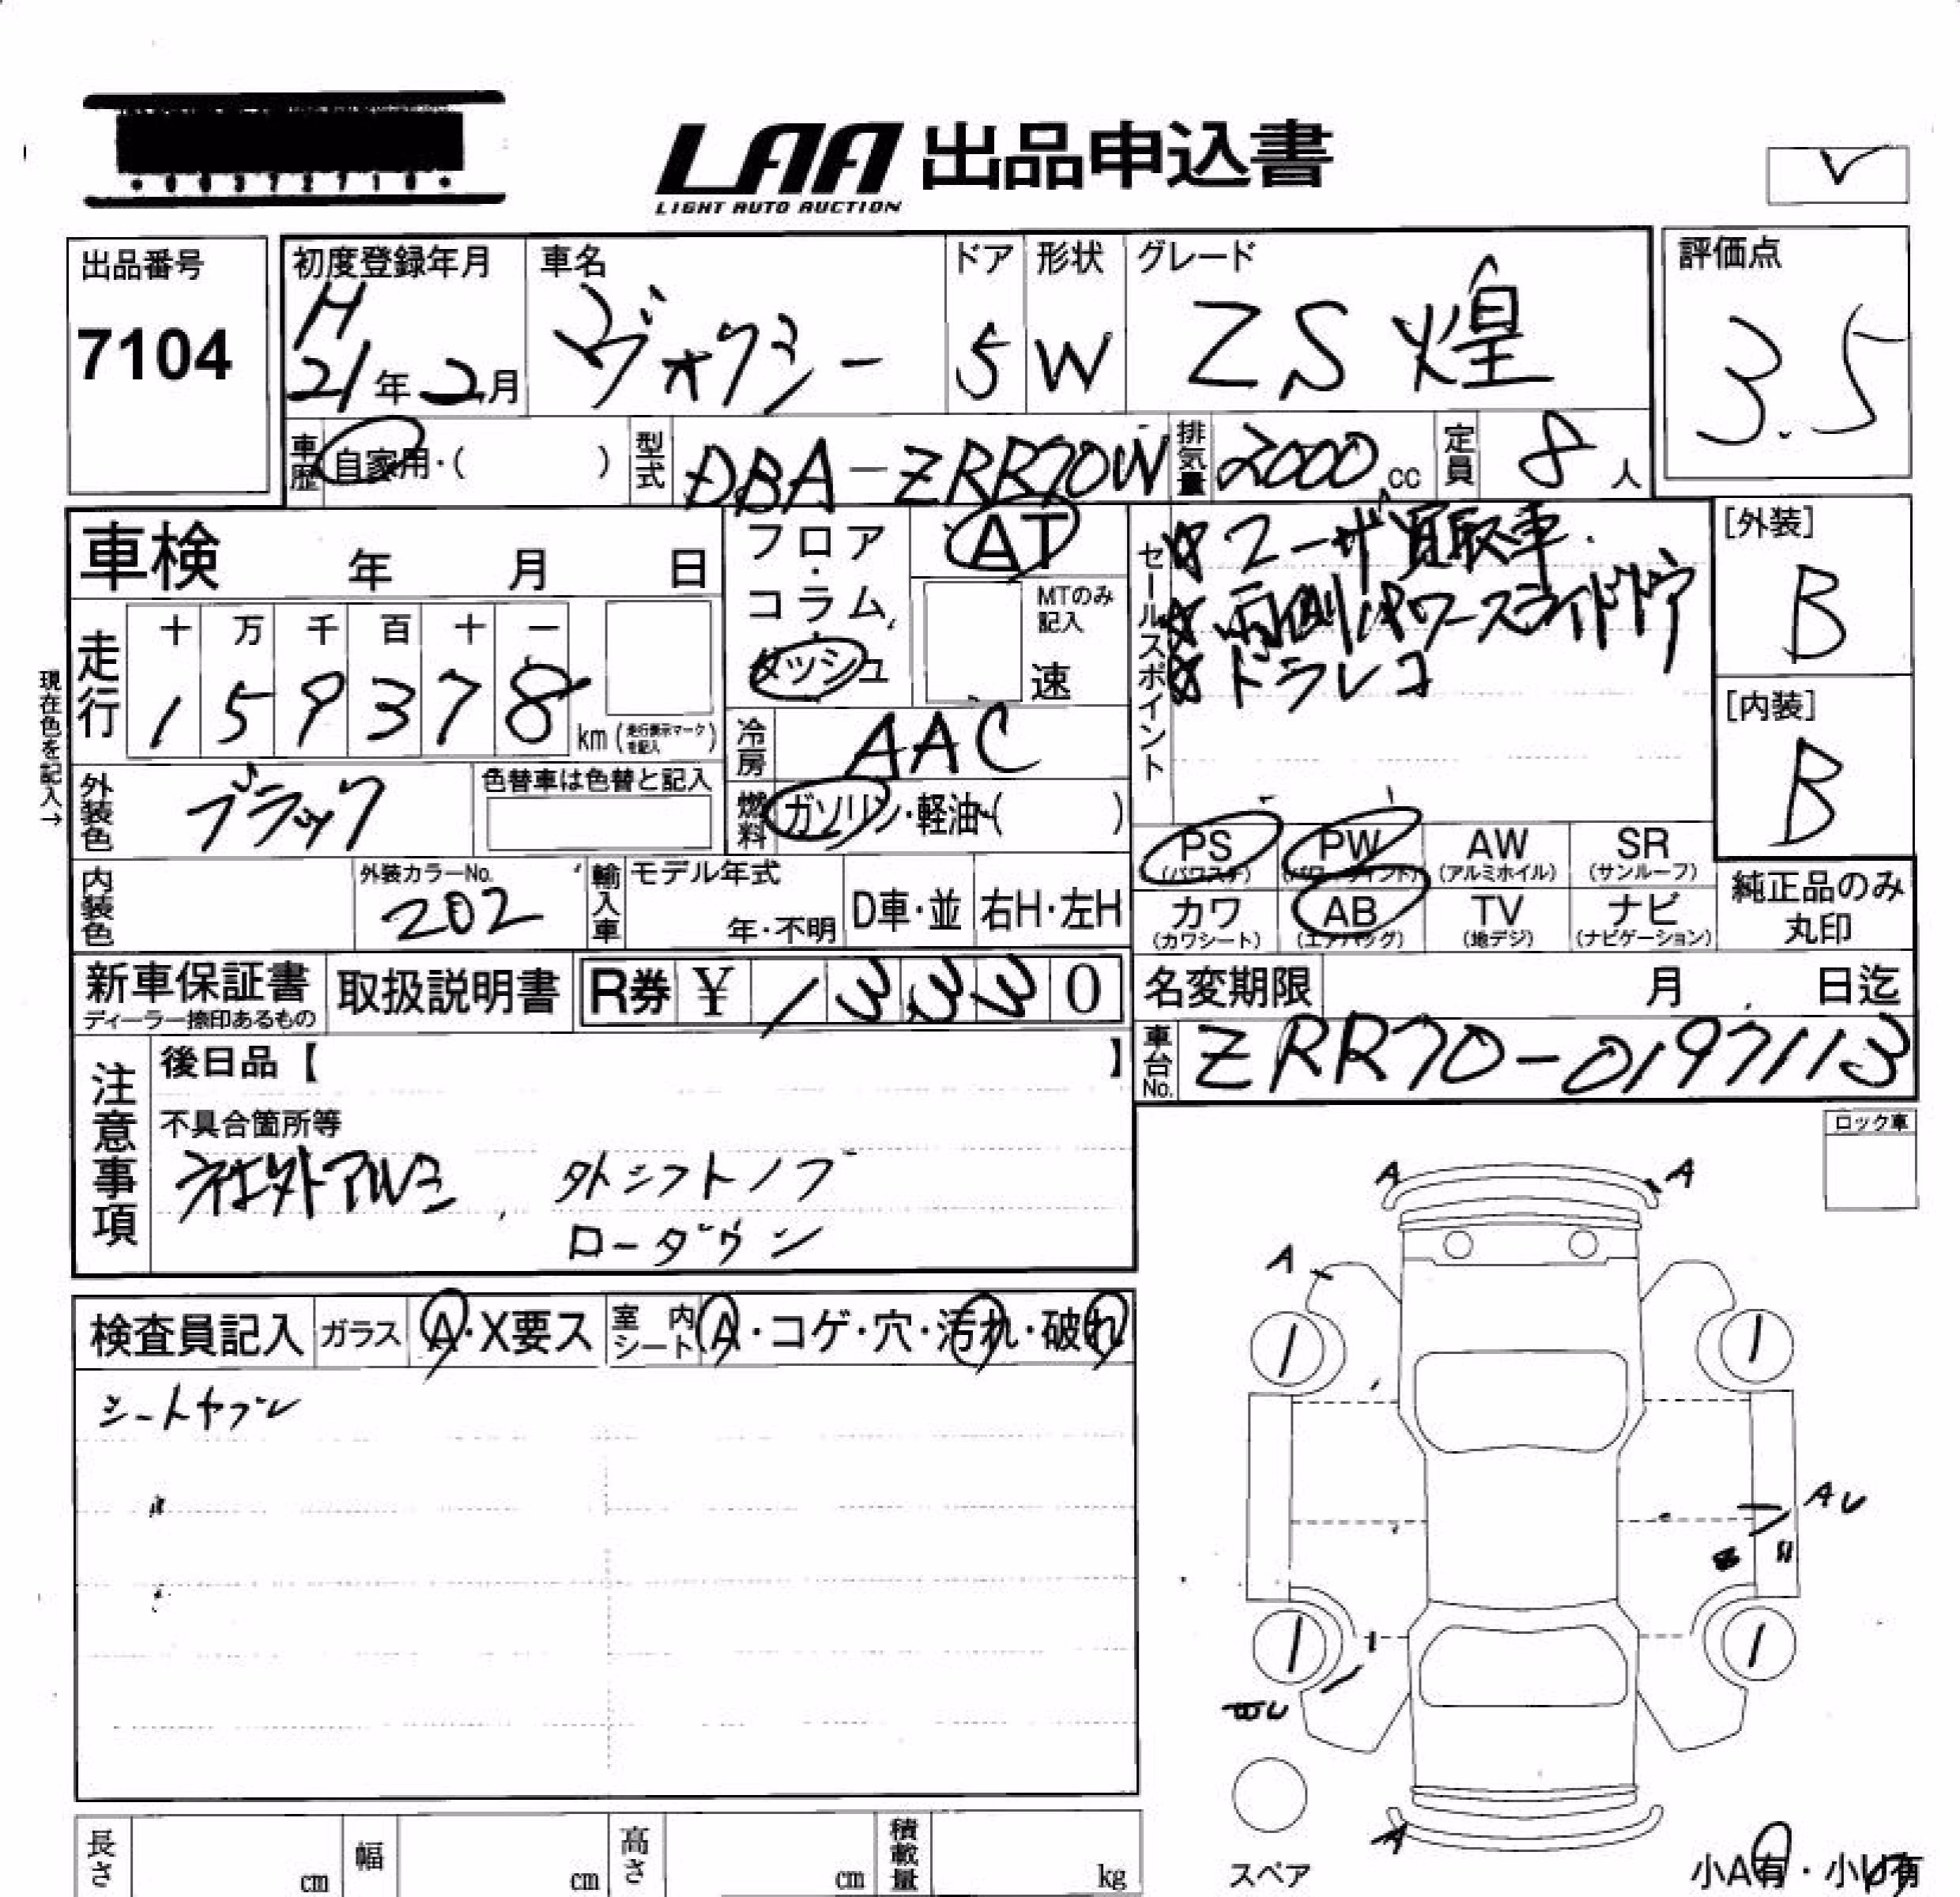 LAA 出品申込書
LIGHT AUTO AUCTION
出品番号
7104
初度登録年月
H
21年2月
車名
ヴォクシー
ドア
5
形状
W
グレード
ZS 煌
評価点
3.5
車歴 自家用・( )
型式 DBA-ZRR70W
排気量 2000cc
定員 8人
車検 年 月 日
走行
十 万 千 百 十 一
1 5 9 3 7 8 km (走行表示マークを記入)
現在色を記入→
外装色 ブラック
色替車は色替と記入
内装色
外装カラーNo.
202
フロア・コラム・ダッシュ
AT
MTのみ記入
速
冷房 AAC
燃料 ガソリン・軽油・( )
輸入車
モデル年式
年・不明
D車・並
右H・左H
セールスポイント
☆ユーザ買取車
☆両側パワースライドドア
☆ドラレコ
[外装]
B
[内装]
B
PS (パワステ)
PW (パワーウインド)
AW (アルミホイル)
SR (サンルーフ)
カワ (カワシート)
AB (エアバッグ)
TV (地デジ)
ナビ (ナビゲーション)
純正品のみ
丸印
新車保証書
ディーラー捺印あるもの
取扱説明書
R券 ¥ 13330
名変期限 月 日迄
車台No. ZRR70-0197113
注意事項
後日品【 】
不具合箇所等
社外アルミ 外シフトノブ
ローダウン
ロック車
検査員記入
ガラス A・X要ス
室内シート A・コゲ・穴・汚れ・破れ
シートヤブレ
A A
A
AU
A
スペア
小A有・小U有
長さ cm
幅 cm
高さ cm
積載量 kg